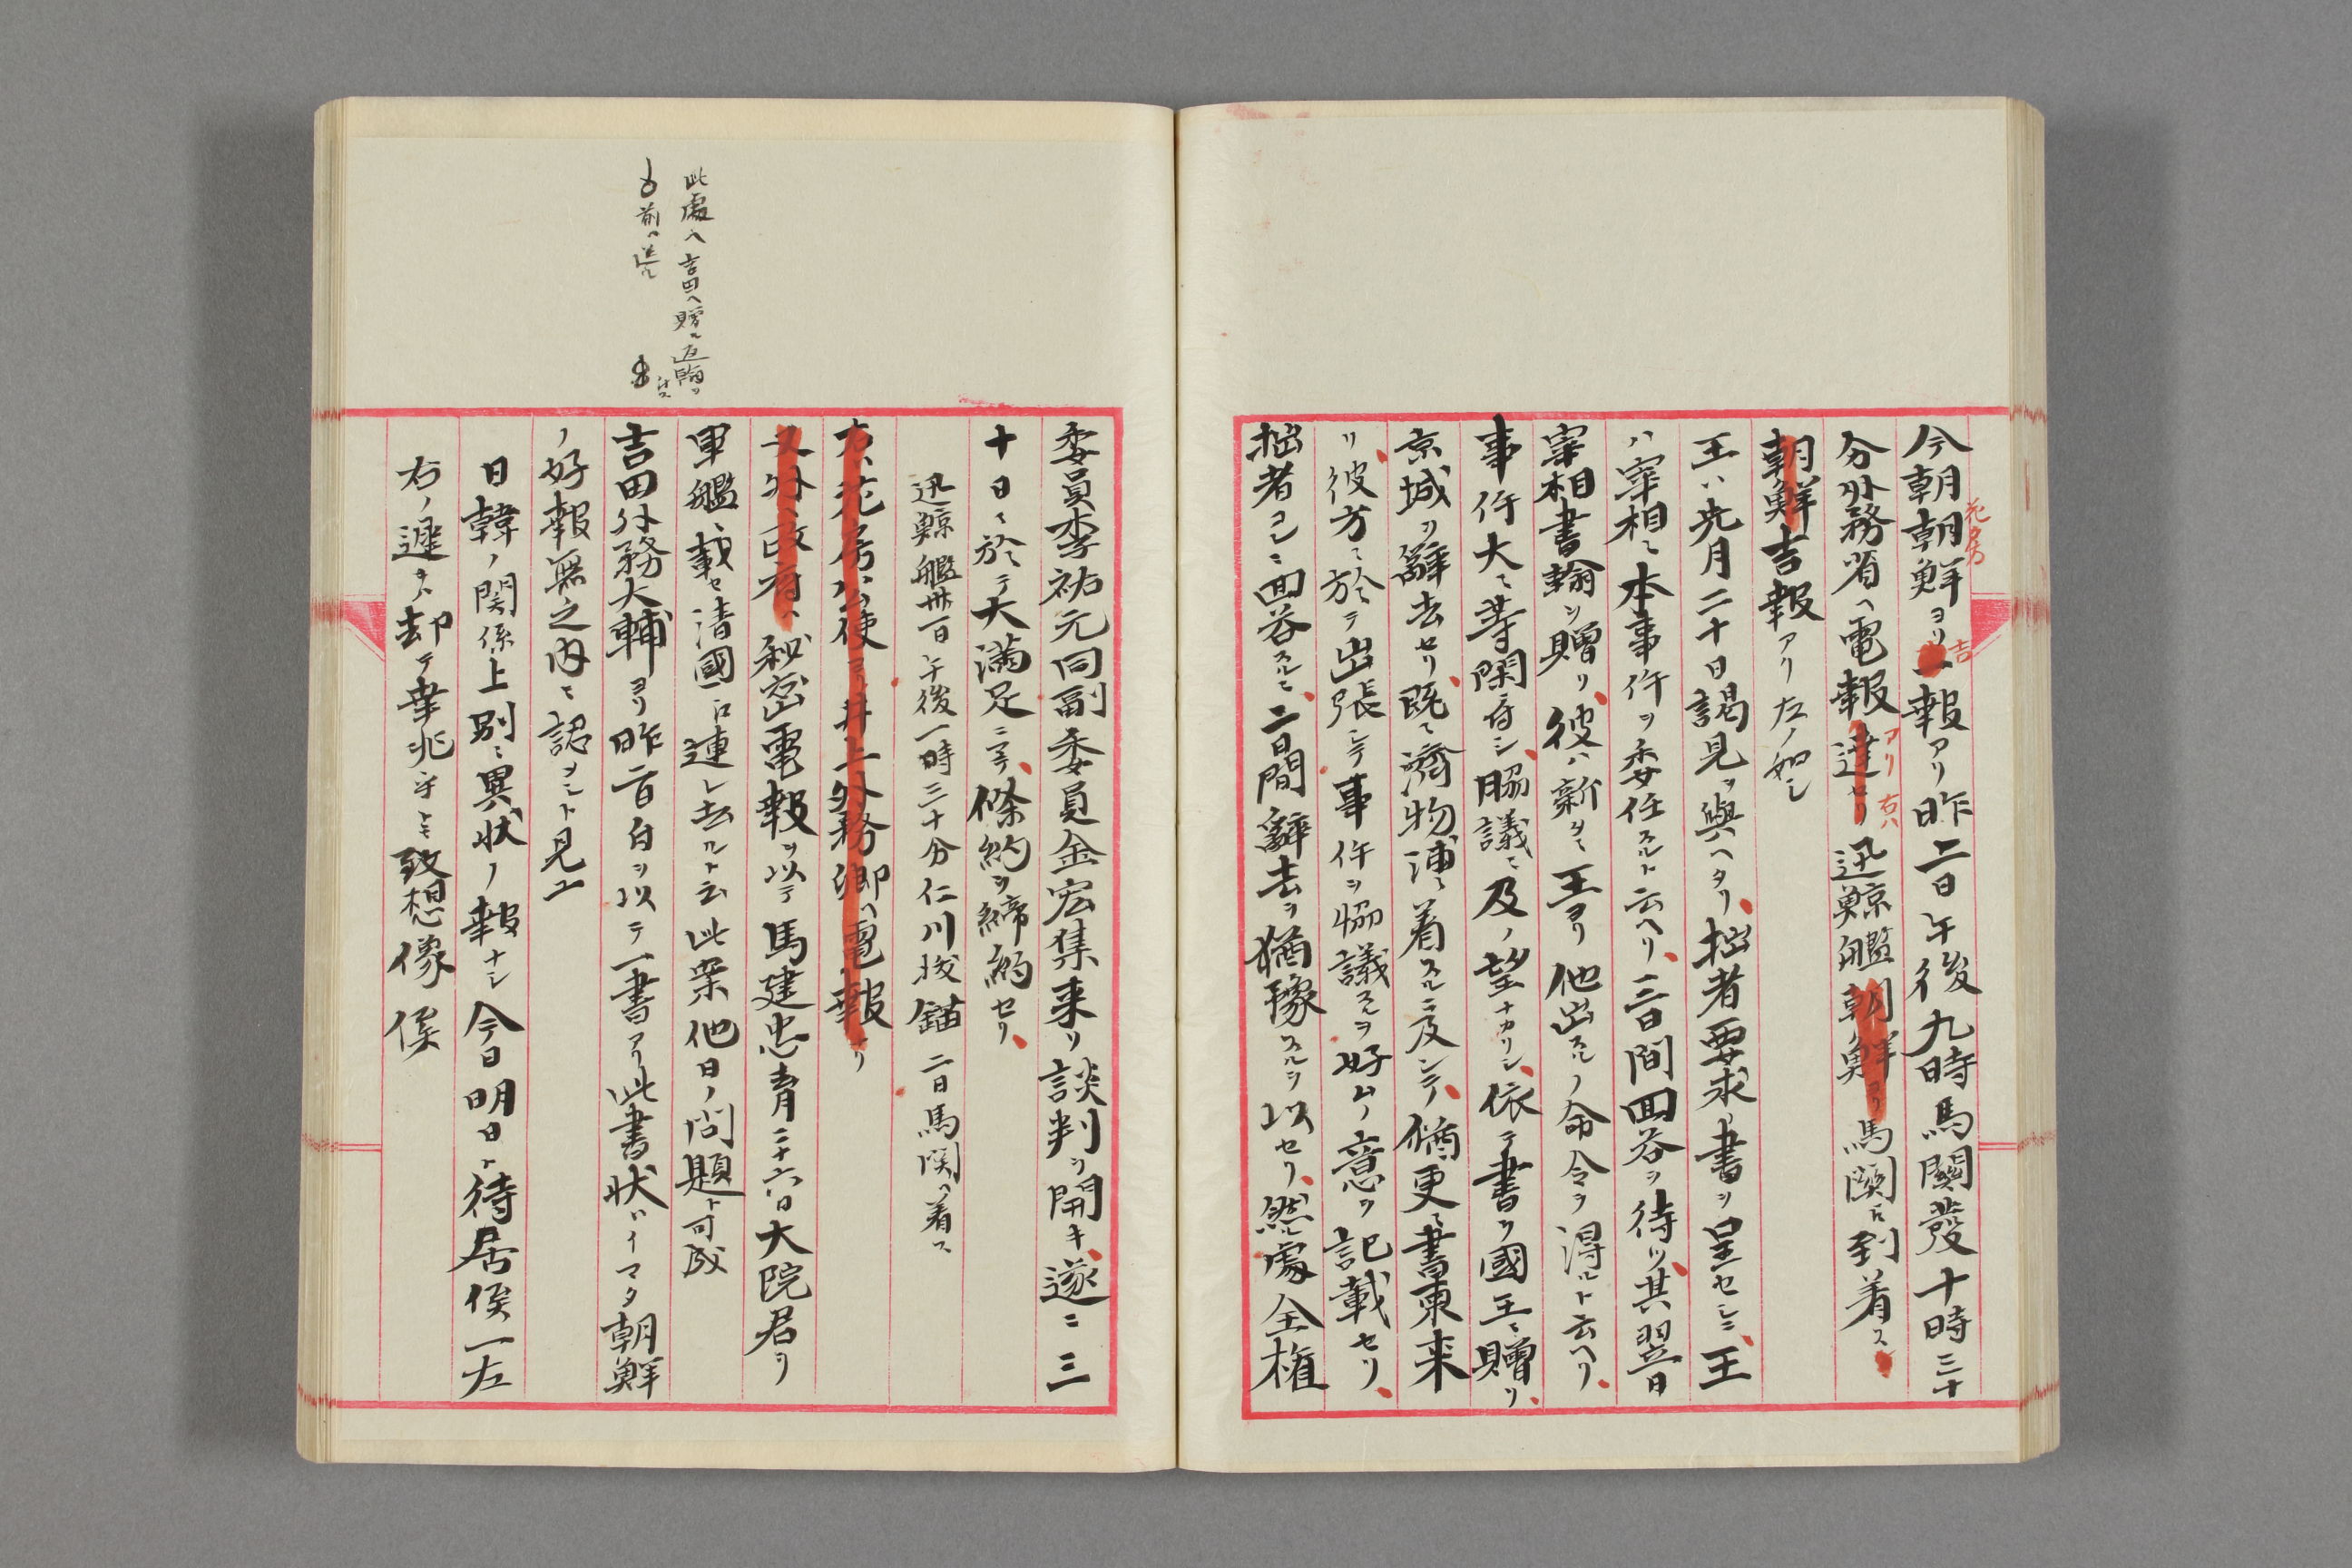 今朝朝鮮ヨリ一報アリ昨二日午後九時馬關發十時三十
花房
吉
分外務省ヘ電報達セリ迅鯨艦朝鮮ヨリ馬関ニ到着ス
アリ右ハ
朝鮮吉報アリ左ノ如シ
王ハ先月二十日謁見ヲ與ヘタリ、拙者要求ノ書ヲ呈セシニ、王
ハ宰相ニ本事件ヲ委任スルト云ヘリ、三日間回答ヲ待ツ、其翌日
宰相書翰ヲ贈リ、彼ハ新タニ王ヨリ他出スルノ命令ヲ得ルト云ヘリ、
事件大ニ等閑ニ付シ、脇議ニ及ノ望ナカリシ、依テ書ヲ國王ニ贈リ、
京城ヲ辭去セリ、既ニ濟物浦ニ着スルニ及ンテ、猶更ニ書東来
リ、彼方ニ於テ出張シテ事件ヲ協議スルヲ好ムノ意ヲ記載セリ、
拙者ヨニ回答スルニ、二日間辭去ヲ猶豫スルヲ以セリ、然ル處全権
委員李祐元同副委員金宏集来リ談判ヲ開キ、遂ニ三
十日ニ於テ大満足ニテ、條約ヲ締約セリ、
迅鯨艦卅一日午後一時三十分仁川抜錨二日馬関ヘ着ス
右ハ花房公使ヨリ井上外務卿ヘ電報アリ
又外ニ政府ヘ秘密電報ヲ以テ馬建忠青月二十六日大院君ヲ
軍艦ニ載セ清國ニ連レ去ルト云此案他日ノ問題ト可成
此處ヘ吉田ヘ贈ル返翰ヲ
前ニ送ル
吉田外務大輔ヨリ昨二日日付ヲ以テ一書アリ此書状ハイマタ朝鮮
ノ好報無之内ニ認ヲシト見ユ
日韓ノ関係上別ニ異状ノ報ナシ今日明日ト待居候一左
右ノ遅キハ却テ幸兆乎トモ致想像候